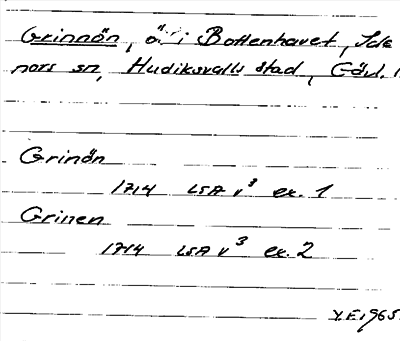 Grinnön, ö i Bottenhavet, Ide
nors sn, Hudiksvalls stad, Gävl.
Grinön
1714 LSA v³ ex. 1
Grinen
1714 LSA v³ ex. 2
Y.E. 1965